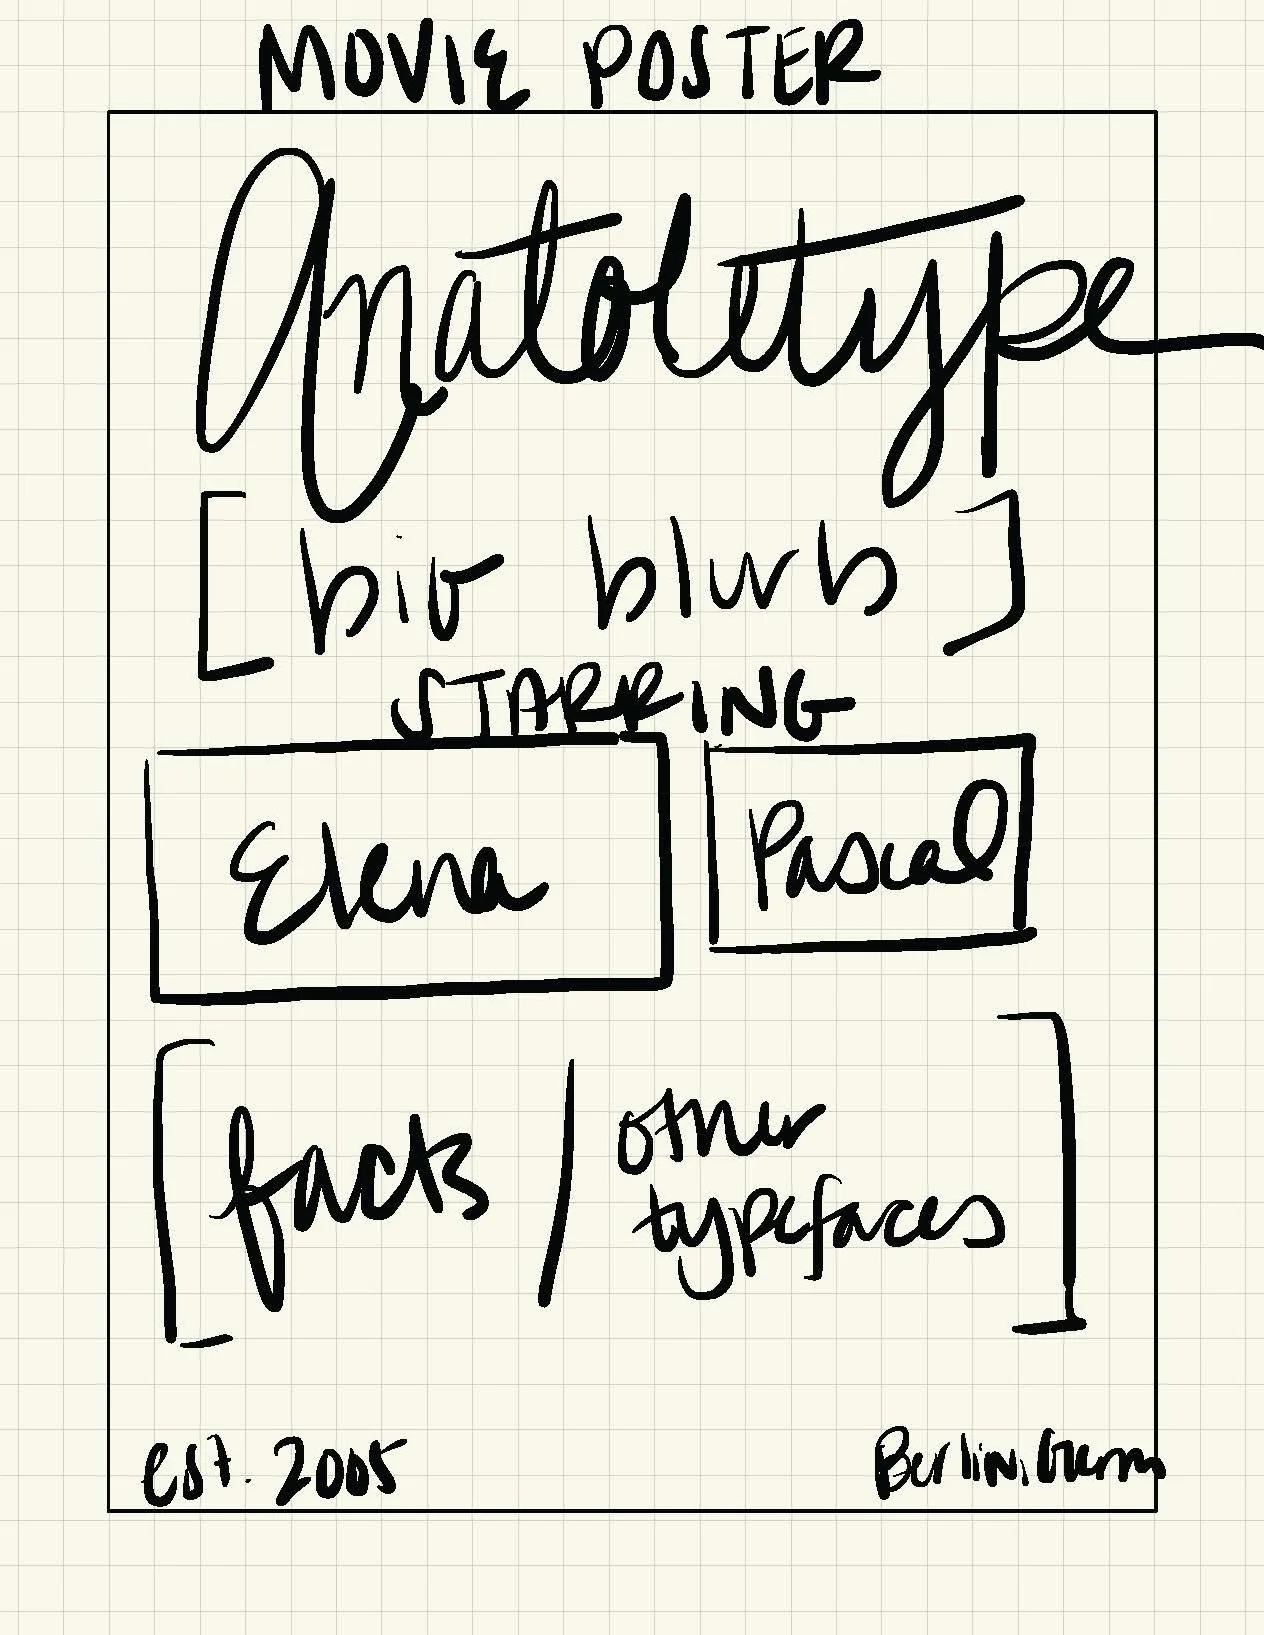 MOVIE POSTER
Anatoletype
[bio blurb]
STARRING
Elena
Pascal
[facts / other
typefaces]
est. 2005
Berlin, Germ